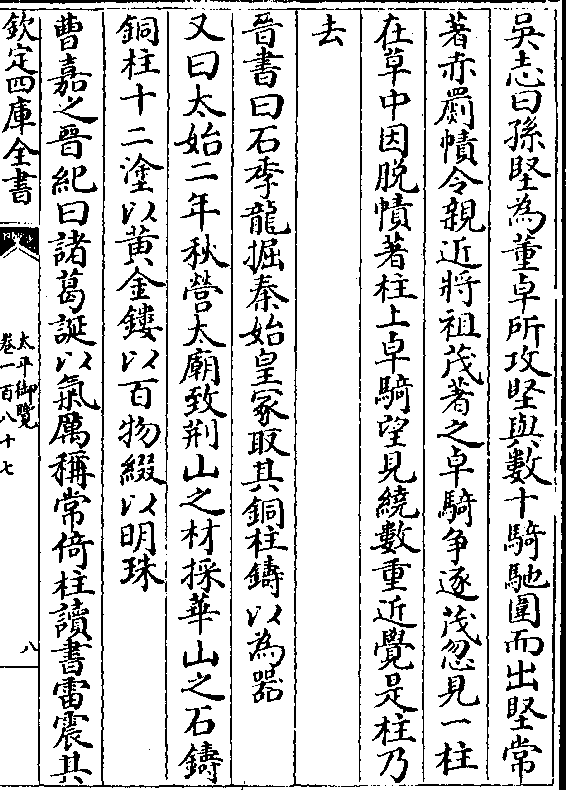 吳志曰孫堅為董卓所攻堅與數十騎馳圍而出堅常
著赤罽幘令親近將祖茂著之卓騎争逐茂忽見一柱
在草中因脱幘著柱上卓騎望見繞數重近覺是柱乃
去
晉書曰石季龍掘秦始皇冢取其銅柱鑄以為器
又曰太始二年秋營太廟致荆山之材採華山之石鑄
銅柱十二塗以黄金鏤以百物綴以明珠
曹嘉之晉紀曰諸葛誕以氣厲稱常倚柱讀書雷震其
欽定四庫全書
太平御覽
卷一百八十七
八